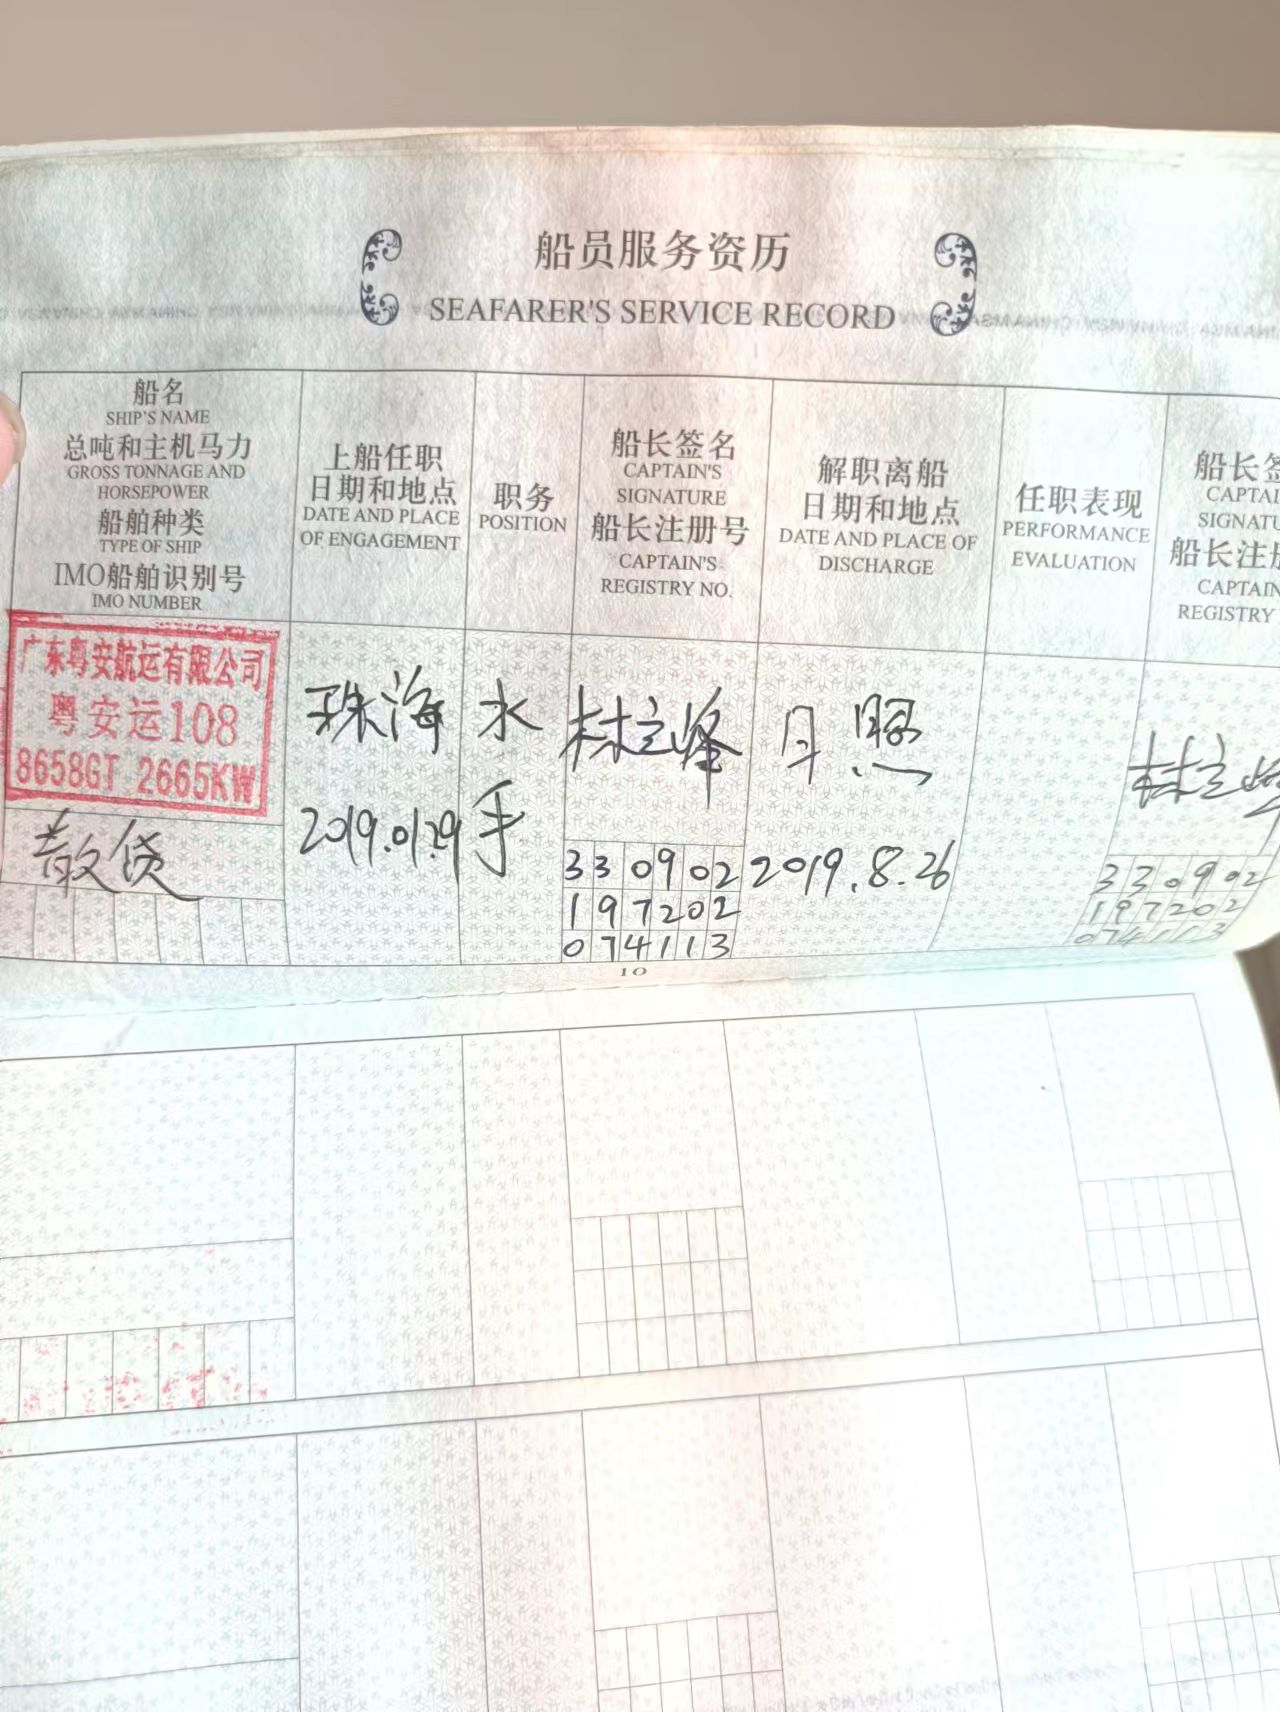 船员服务资历
SEAFARER'S SERVICE RECORD
船名
SHIP'S NAME
总吨和主机马力
GROSS TONNAGE AND
HORSEPOWER
船舶种类
TYPE OF SHIP
IMO船舶识别号
IMO NUMBER
上船任职
日期和地点
DATE AND PLACE
OF ENGAGEMENT
职务
POSITION
船长签名
CAPTAIN'S
SIGNATURE
船长注册号
CAPTAIN'S
REGISTRY NO.
解职离船
日期和地点
DATE AND PLACE OF
DISCHARGE
任职表现
PERFORMANCE
EVALUATION
船长签
CAPTAI
SIGNATU
船长注册
CAPTAIN
REGISTRY
广东粤安航运有限公司
粤安运108
8658GT 2665KW
散货
珠海
2019.01.29
水
手
林立峰
330902
197202
074113
日照
2019.8.26
林立峰
330902
197202
074113
10